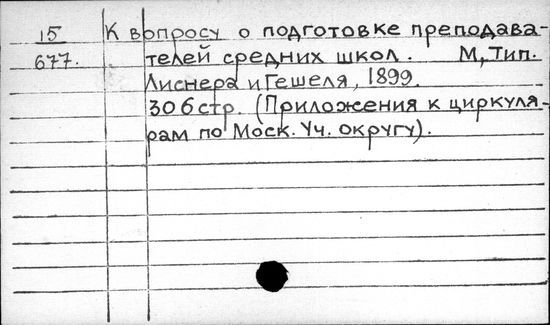 15 К вопросу о подготовке преподава-
677. телей средних школ. М, Тип.
Лиснера и Гешеля, 1899.
306 стр. (Приложения к циркуля-
рам по Моск. Уч. округу).